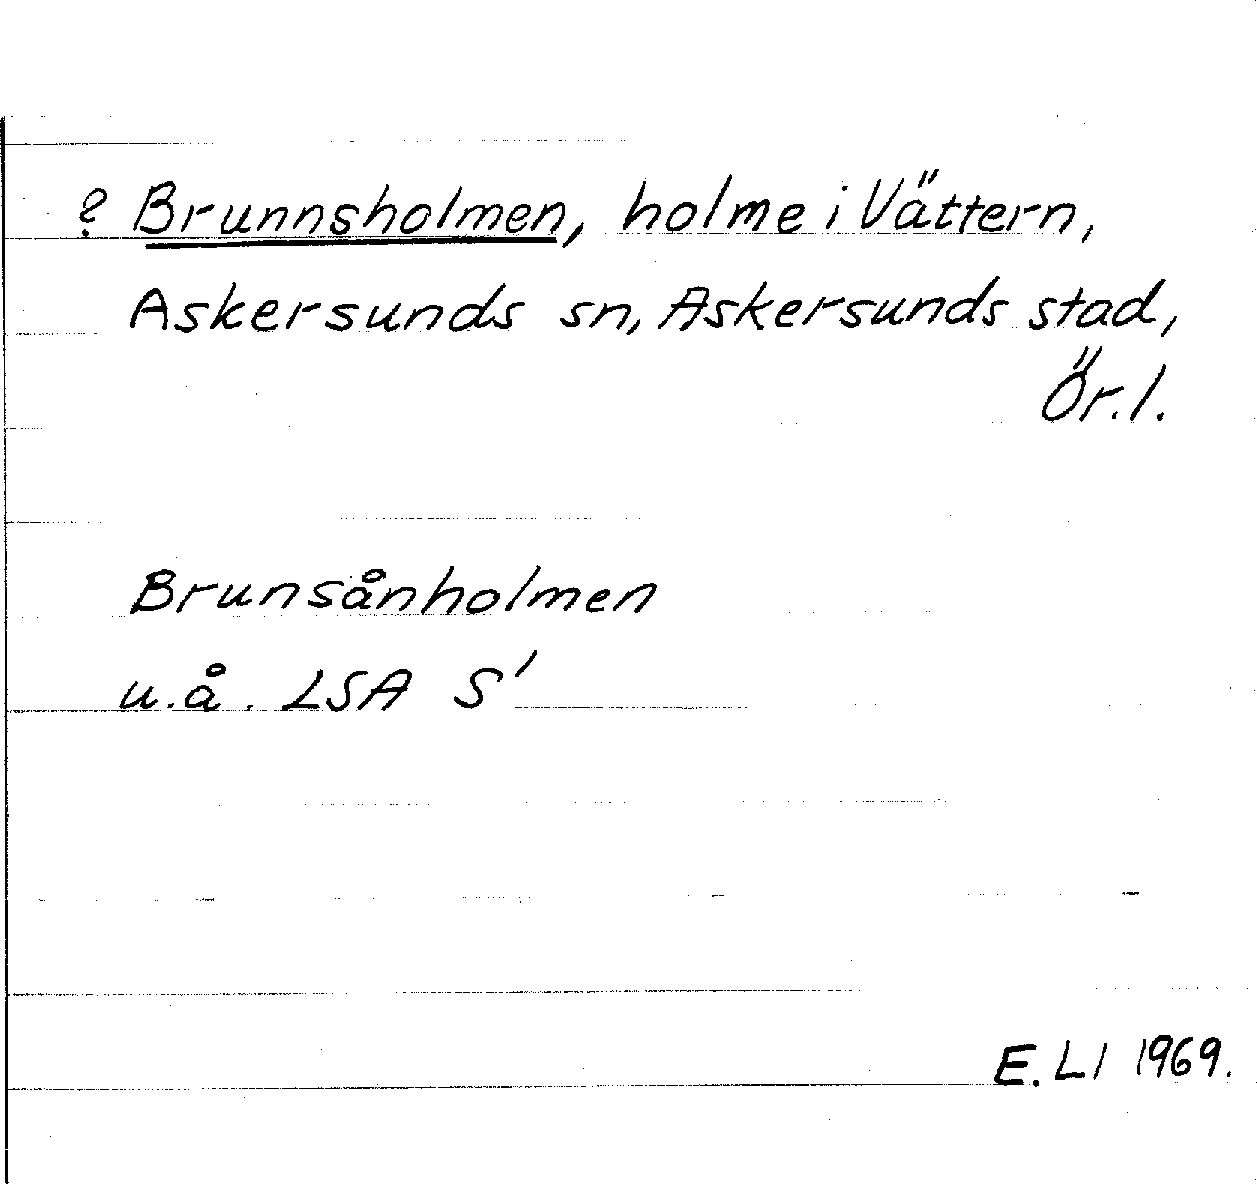 ? Brunnsholmen, holme i Vättern,
Askersunds sn, Askersunds stad,
Ör.l.
Brunsånholmen
u.å. LSA S'
E. Ll 1969.